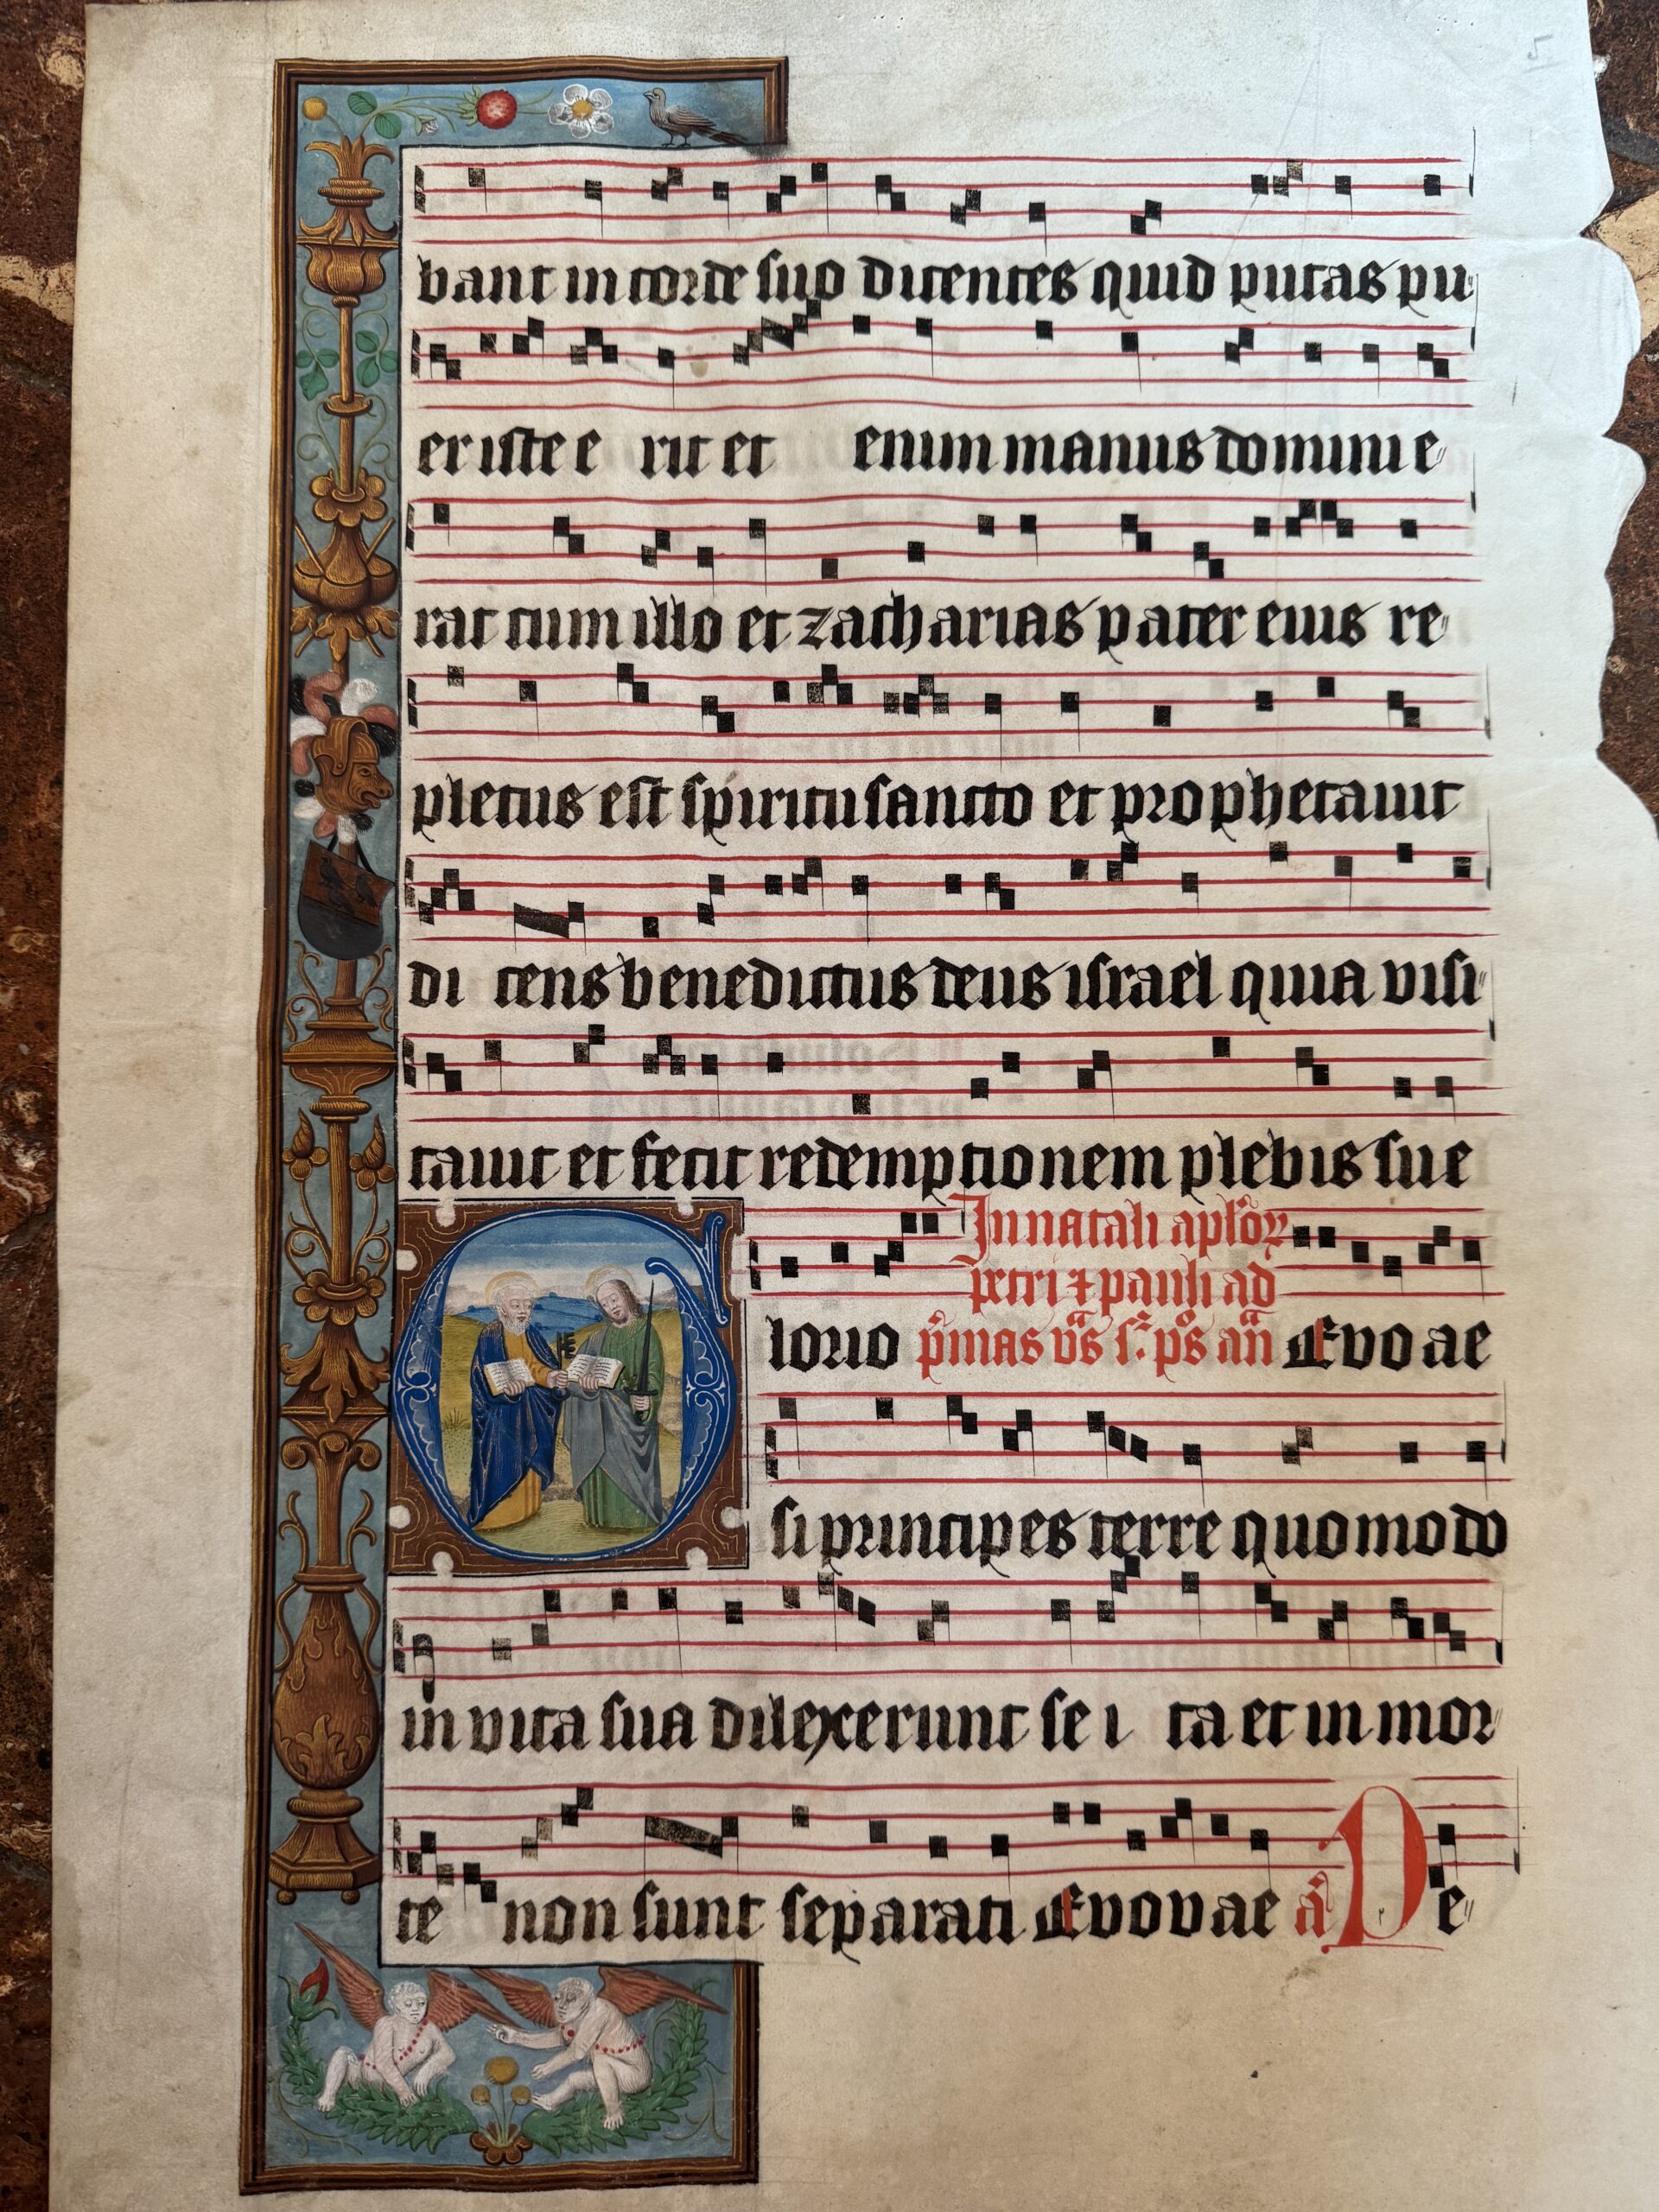 5
bant in corde suo dicentes quid putas pu
er iste e rit et enim manus domini e
rat cum illo et zacharias pater eius re
pletus est spiritu sancto et prophetauit
di cens benedictus deus israel quia visi
tauit et fecit redemptionem plebis sue
In natali aplor̄
petri ⁊ pauli ad
G lorio p̄mas v̄s s: p̄s an̄ Euo ae
si principes terre quomodo
in vita sua dilexerunt se i ta et in mor
te non sunt separati Euouae aᷓ P e